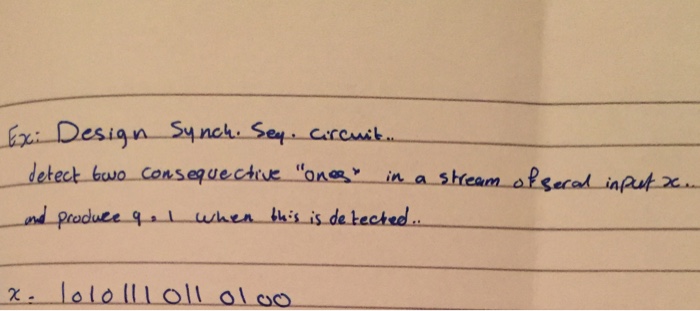 Ex: Design Synch. Seq. circuit..
detect two consequective "ones" in a stream of seral input x..
and produce q = 1 when this is detected..
x = 10101110110100